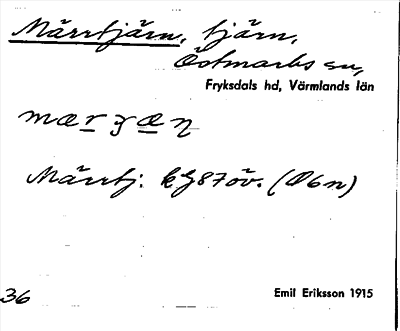 Märrtjärn, tjärn,
Östmarks sn,
Fryksdals hd, Värmlands län
mærʒæɳ
Märrtj. kJ87öv. (Ö6n)
36
Emil Eriksson 1915